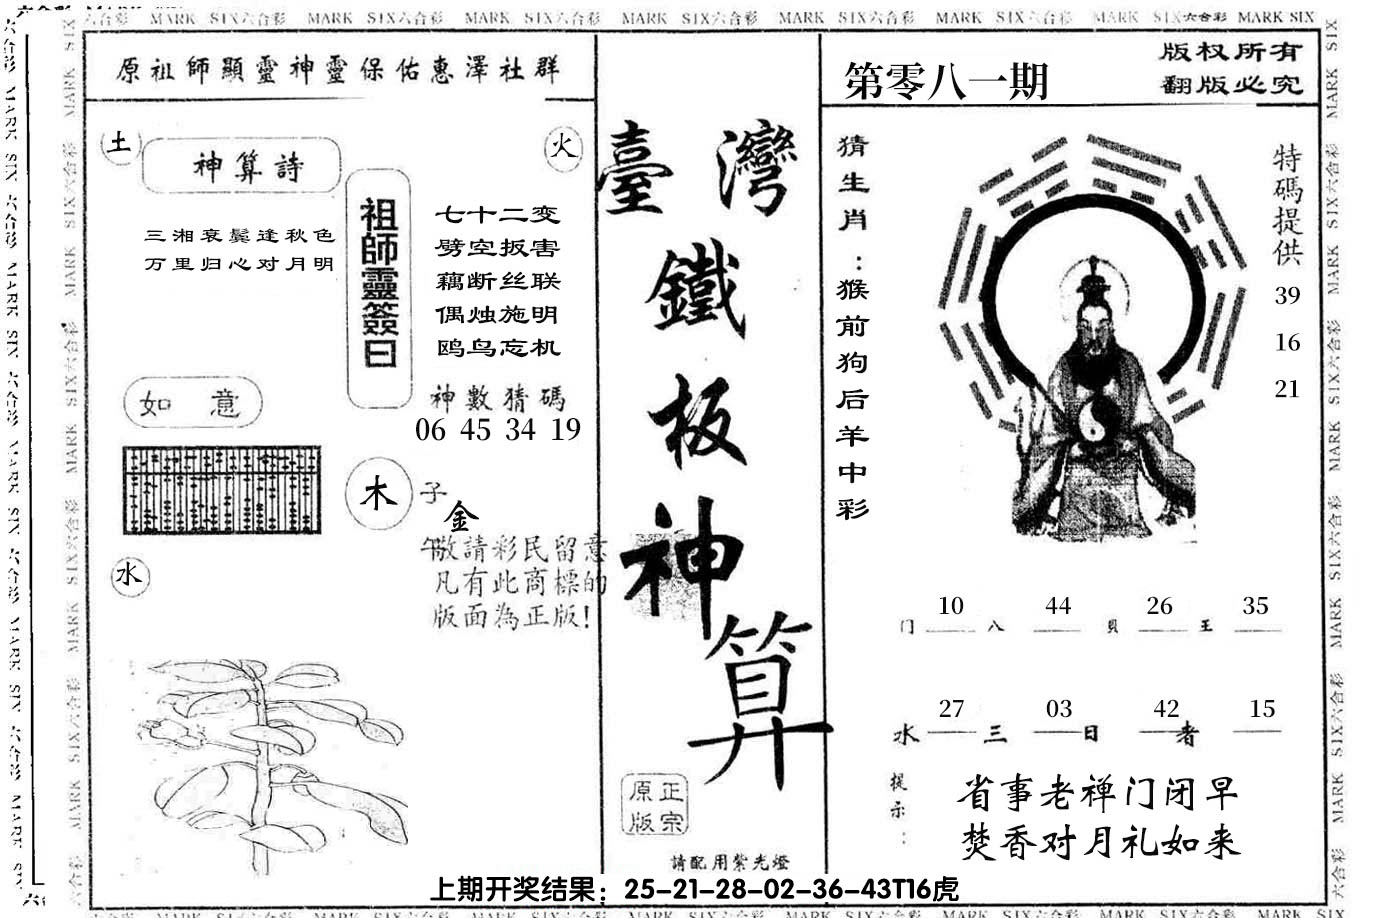 MARK SIX六合彩 MARK SIX六合彩 MARK SIX六合彩 MARK SIX六合彩 MARK SIX六合彩 MARK SIX六合彩 MARK SIX六合彩 MARK SIX
原祖師顯靈神靈保佑惠澤社群
土
神算詩
火
三湘衰鬓逢秋色
万里归心对月明
祖師靈簽曰
七十二变
劈空扳害
藕断丝联
偶烛施明
鸥鸟忘机
神數猜碼
06 45 34 19
如意
木
子
金
午敬請彩民留意
凡有此商標的
版面為正版!
水
臺灣
鐵
板
神
算
正宗
原版
請配用紫光燈
第零八一期
版权所有
翻版必究
猜生肖:猴前狗后羊中彩
特碼提供
39
16
21
10 44 26 35
门 八 貝 王
27 03 42 15
水 三 日 者
提示:
省事老禅门闭早
焚香对月礼如来
上期开奖结果：25-21-28-02-36-43T16虎